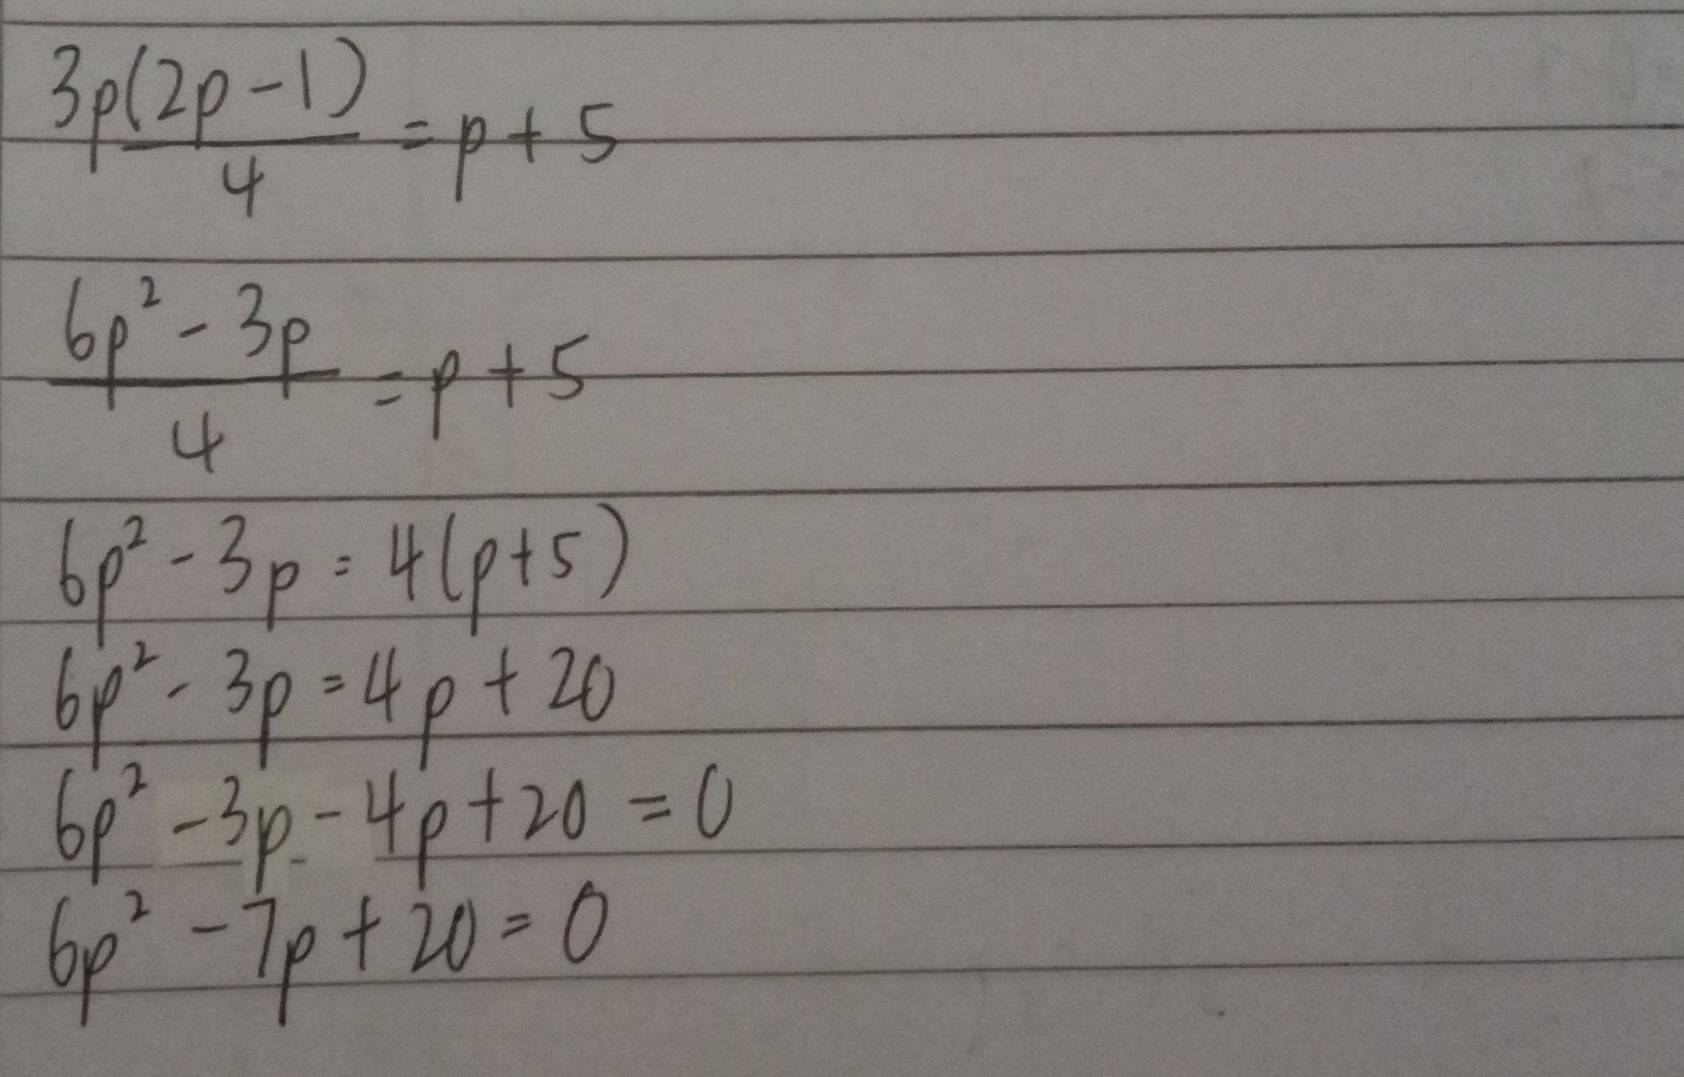 3p(2p-1)/4 = p + 5
6p² - 3p/4 = p + 5
6p² - 3p = 4(p+5)
6p² - 3p = 4p + 20
6p² - 3p - 4p + 20 = 0
6p² - 7p + 20 = 0